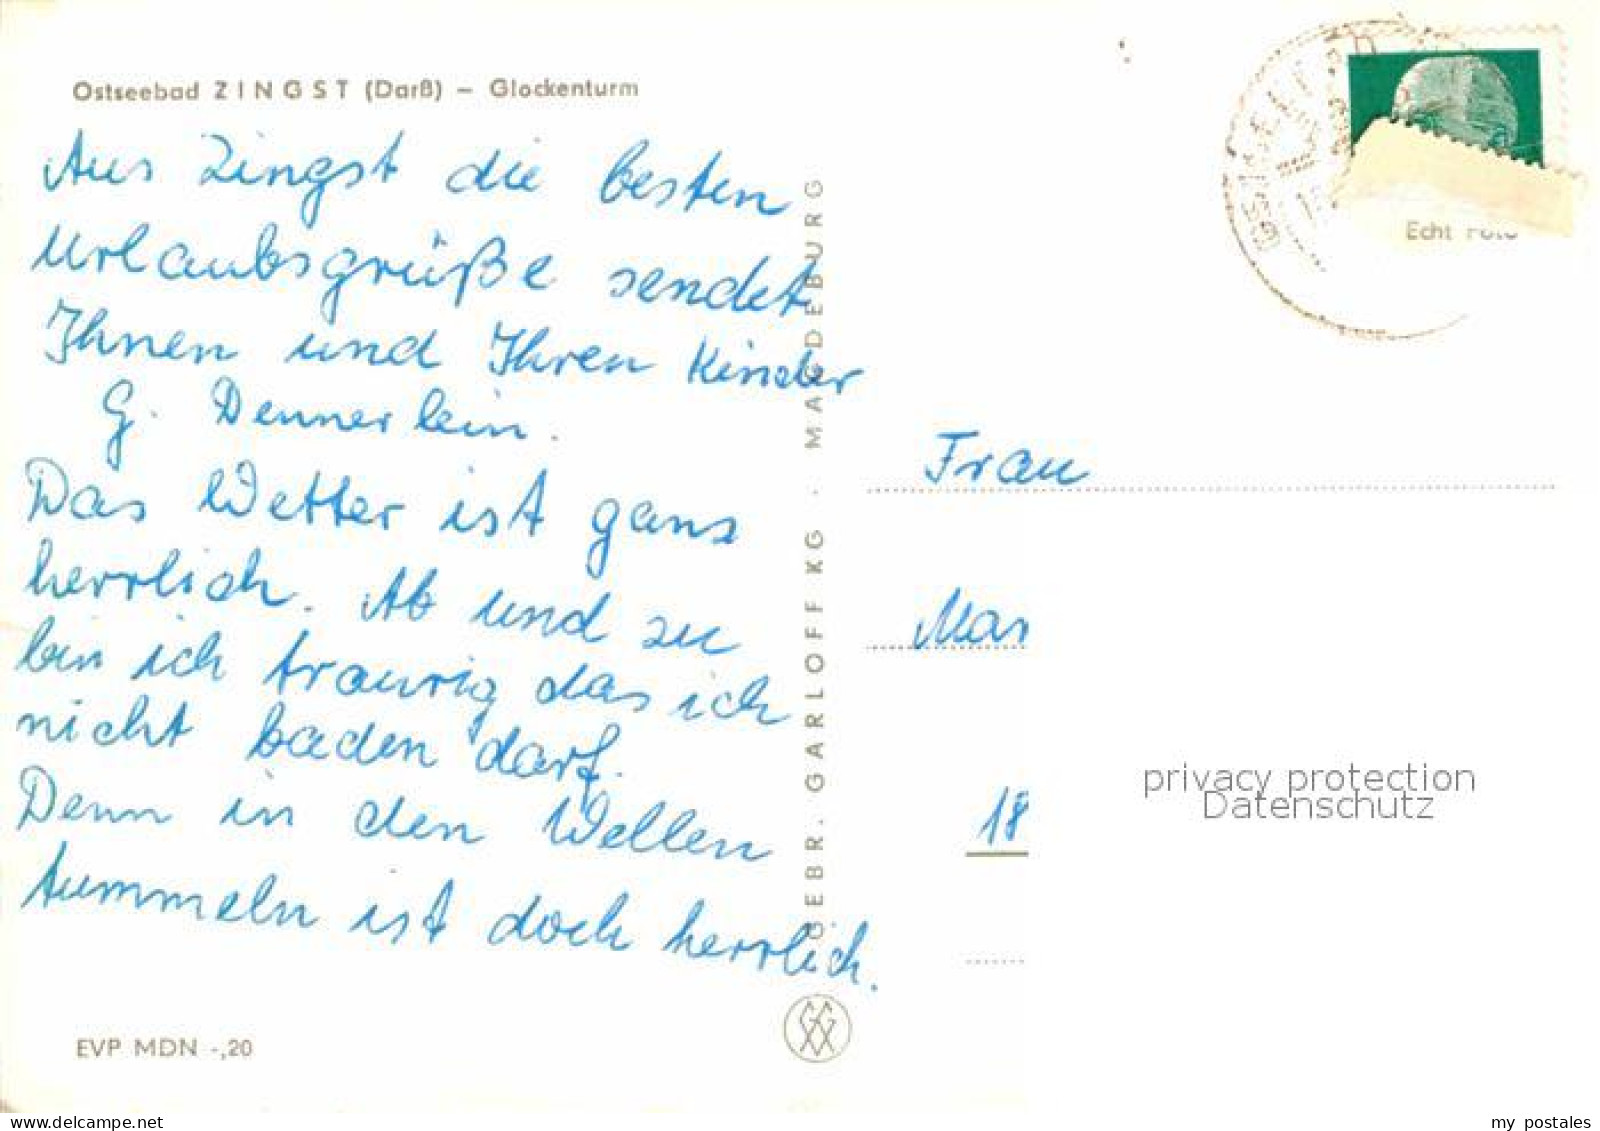 Ostseebad ZINGST (Darß) – Glockenturm
Aus Zingst die besten
Urlaubsgrüße sendet
Ihnen und Ihren Kinder
G. Dennerlein.
Das Wetter ist ganz
herrlich. Ab und zu
bin ich traurig das ich
nicht baden darf.
Denn in den Wellen
tummeln ist doch herrlich.
EVP MDN -,20
GEBR. GARLOFF KG · MAGDEBURG
Echt Foto
Frau
Mar
18
privacy protection
Datenschutz
www.delcampe.net
my_postales